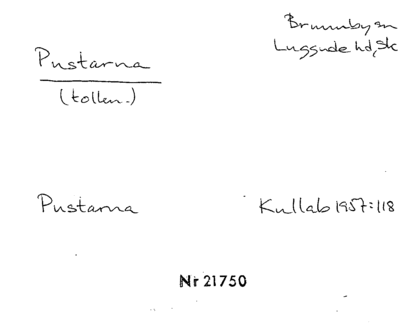 Brunnby sn
Luggude hd, Sk
Pustarna
(tollen.)
Pustarna
Kullab 1957:118
Nr 21750